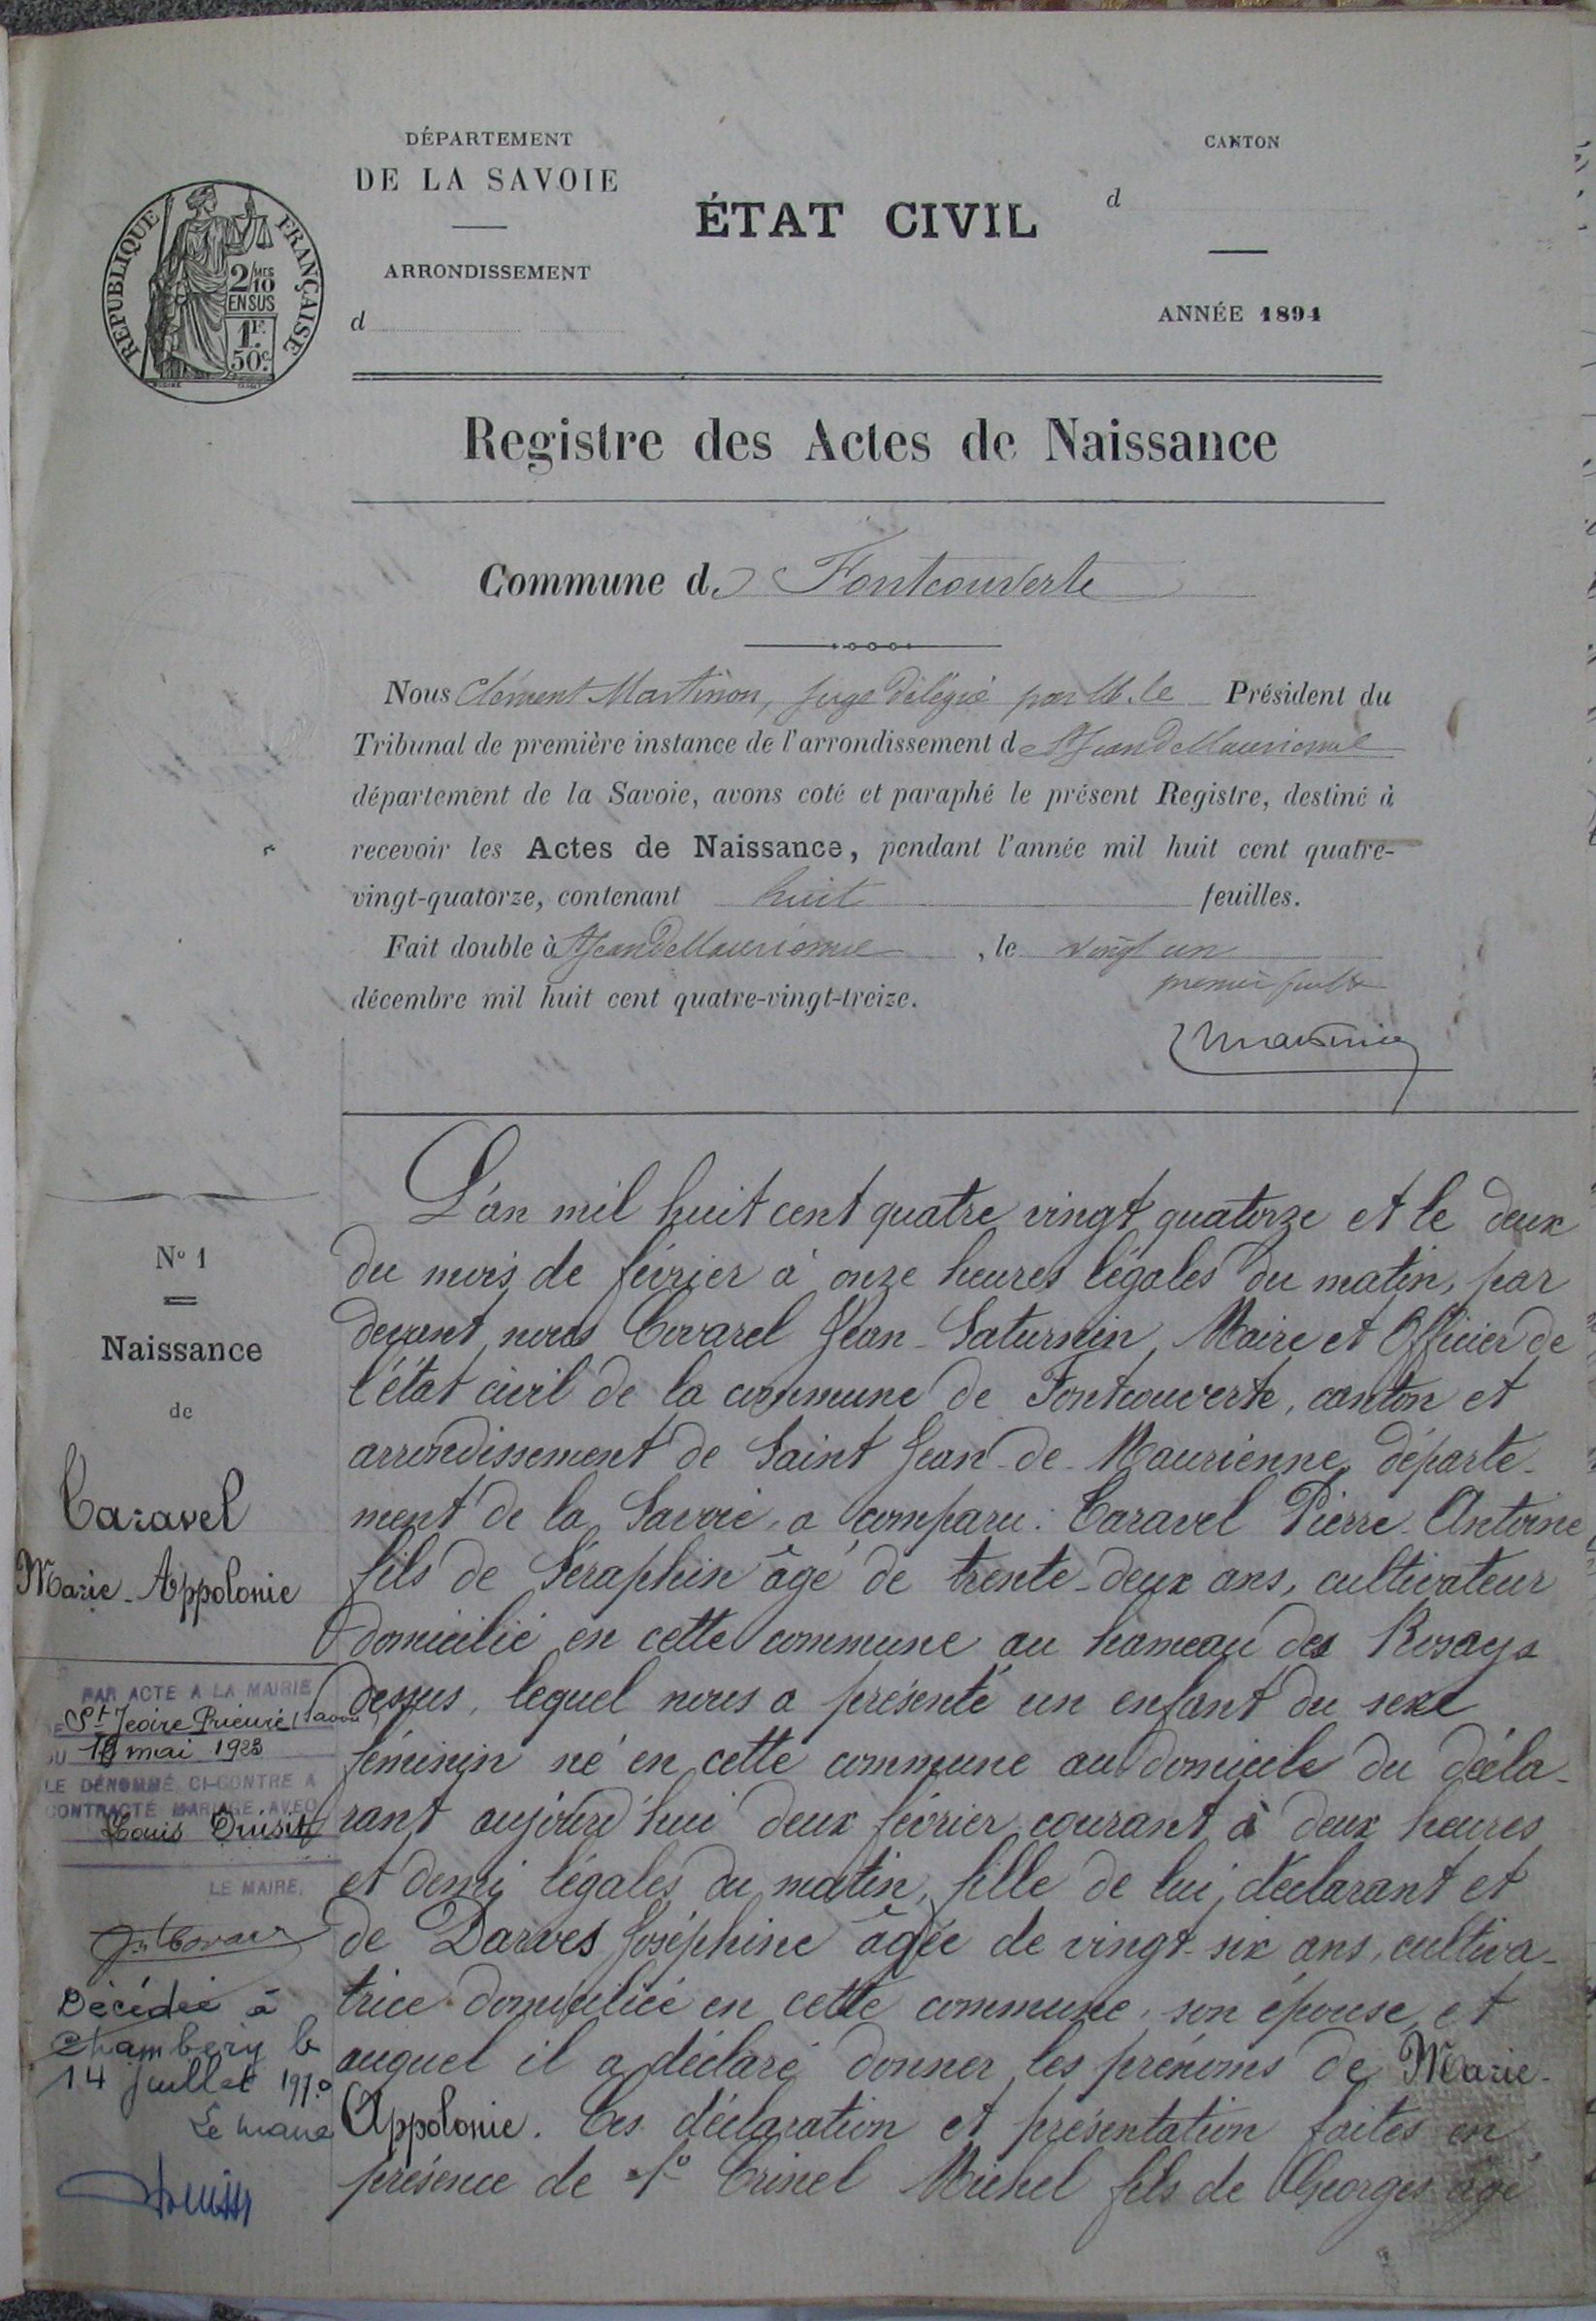 DÉPARTEMENT
DE LA SAVOIE
ARRONDISSEMENT
d
ÉTAT CIVIL
CANTON
d
ANNÉE 1894
RÉPUBLIQUE FRANÇAISE
2/10 MES
EN SUS
1F.
50c.
Registre des Actes de Naissance
Commune de Fontcouverte
Nous Clément Martinon, juge délégué par M. le Président du
Tribunal de première instance de l'arrondissement de St Jean de Maurienne
département de la Savoie, avons coté et paraphé le présent Registre, destiné à
recevoir les Actes de Naissance, pendant l'année mil huit cent quatre-
vingt-quatorze, contenant huit feuilles.
Fait double à St Jean de Maurienne, le vingt un
décembre mil huit cent quatre-vingt-treize.
premier
N° 1
Naissance
de
Caravel
Marie-Appolonie
PAR ACTE A LA MAIRIE
DE St Jeoire Prieuré (Savoie)
DU mai 1923
LE DÉNOMMÉ CI-CONTRE A
CONTRACTÉ MARIAGE AVEC
Louis
LE MAIRE,
Décédée à
Chambéry le
14 juillet
Le maire
L'an mil huit cent quatre vingt quatorze et le deux
du mois de février à onze heures légales du matin, par
devant nous Covarel Jean-Saturnin, Maire et Officier de
l'état civil de la commune de Fontcouverte, canton et
arrondissement de Saint Jean-de-Maurienne, départe-
ment de la Savoie, a comparu: Caravel Pierre-Antoine
fils de Séraphin âgé de trente-deux ans, cultivateur
domicilié en cette commune au hameau des Rosays
dessus, lequel nous a présenté un enfant du sexe
féminin né en cette commune au domicile du décla-
rant aujourd'hui deux février courant à deux heures
et demi légales du matin, fille de lui, déclarant et
de Darves Joséphine âgée de vingt-six ans, cultiva-
trice domiciliée en cette commune, son épouse, et
auquel il a déclaré donner les prénoms de Marie-
Appolonie. Ces déclaration et présentation faites en
présence de 1° Crinel Michel fils de Georges âgé